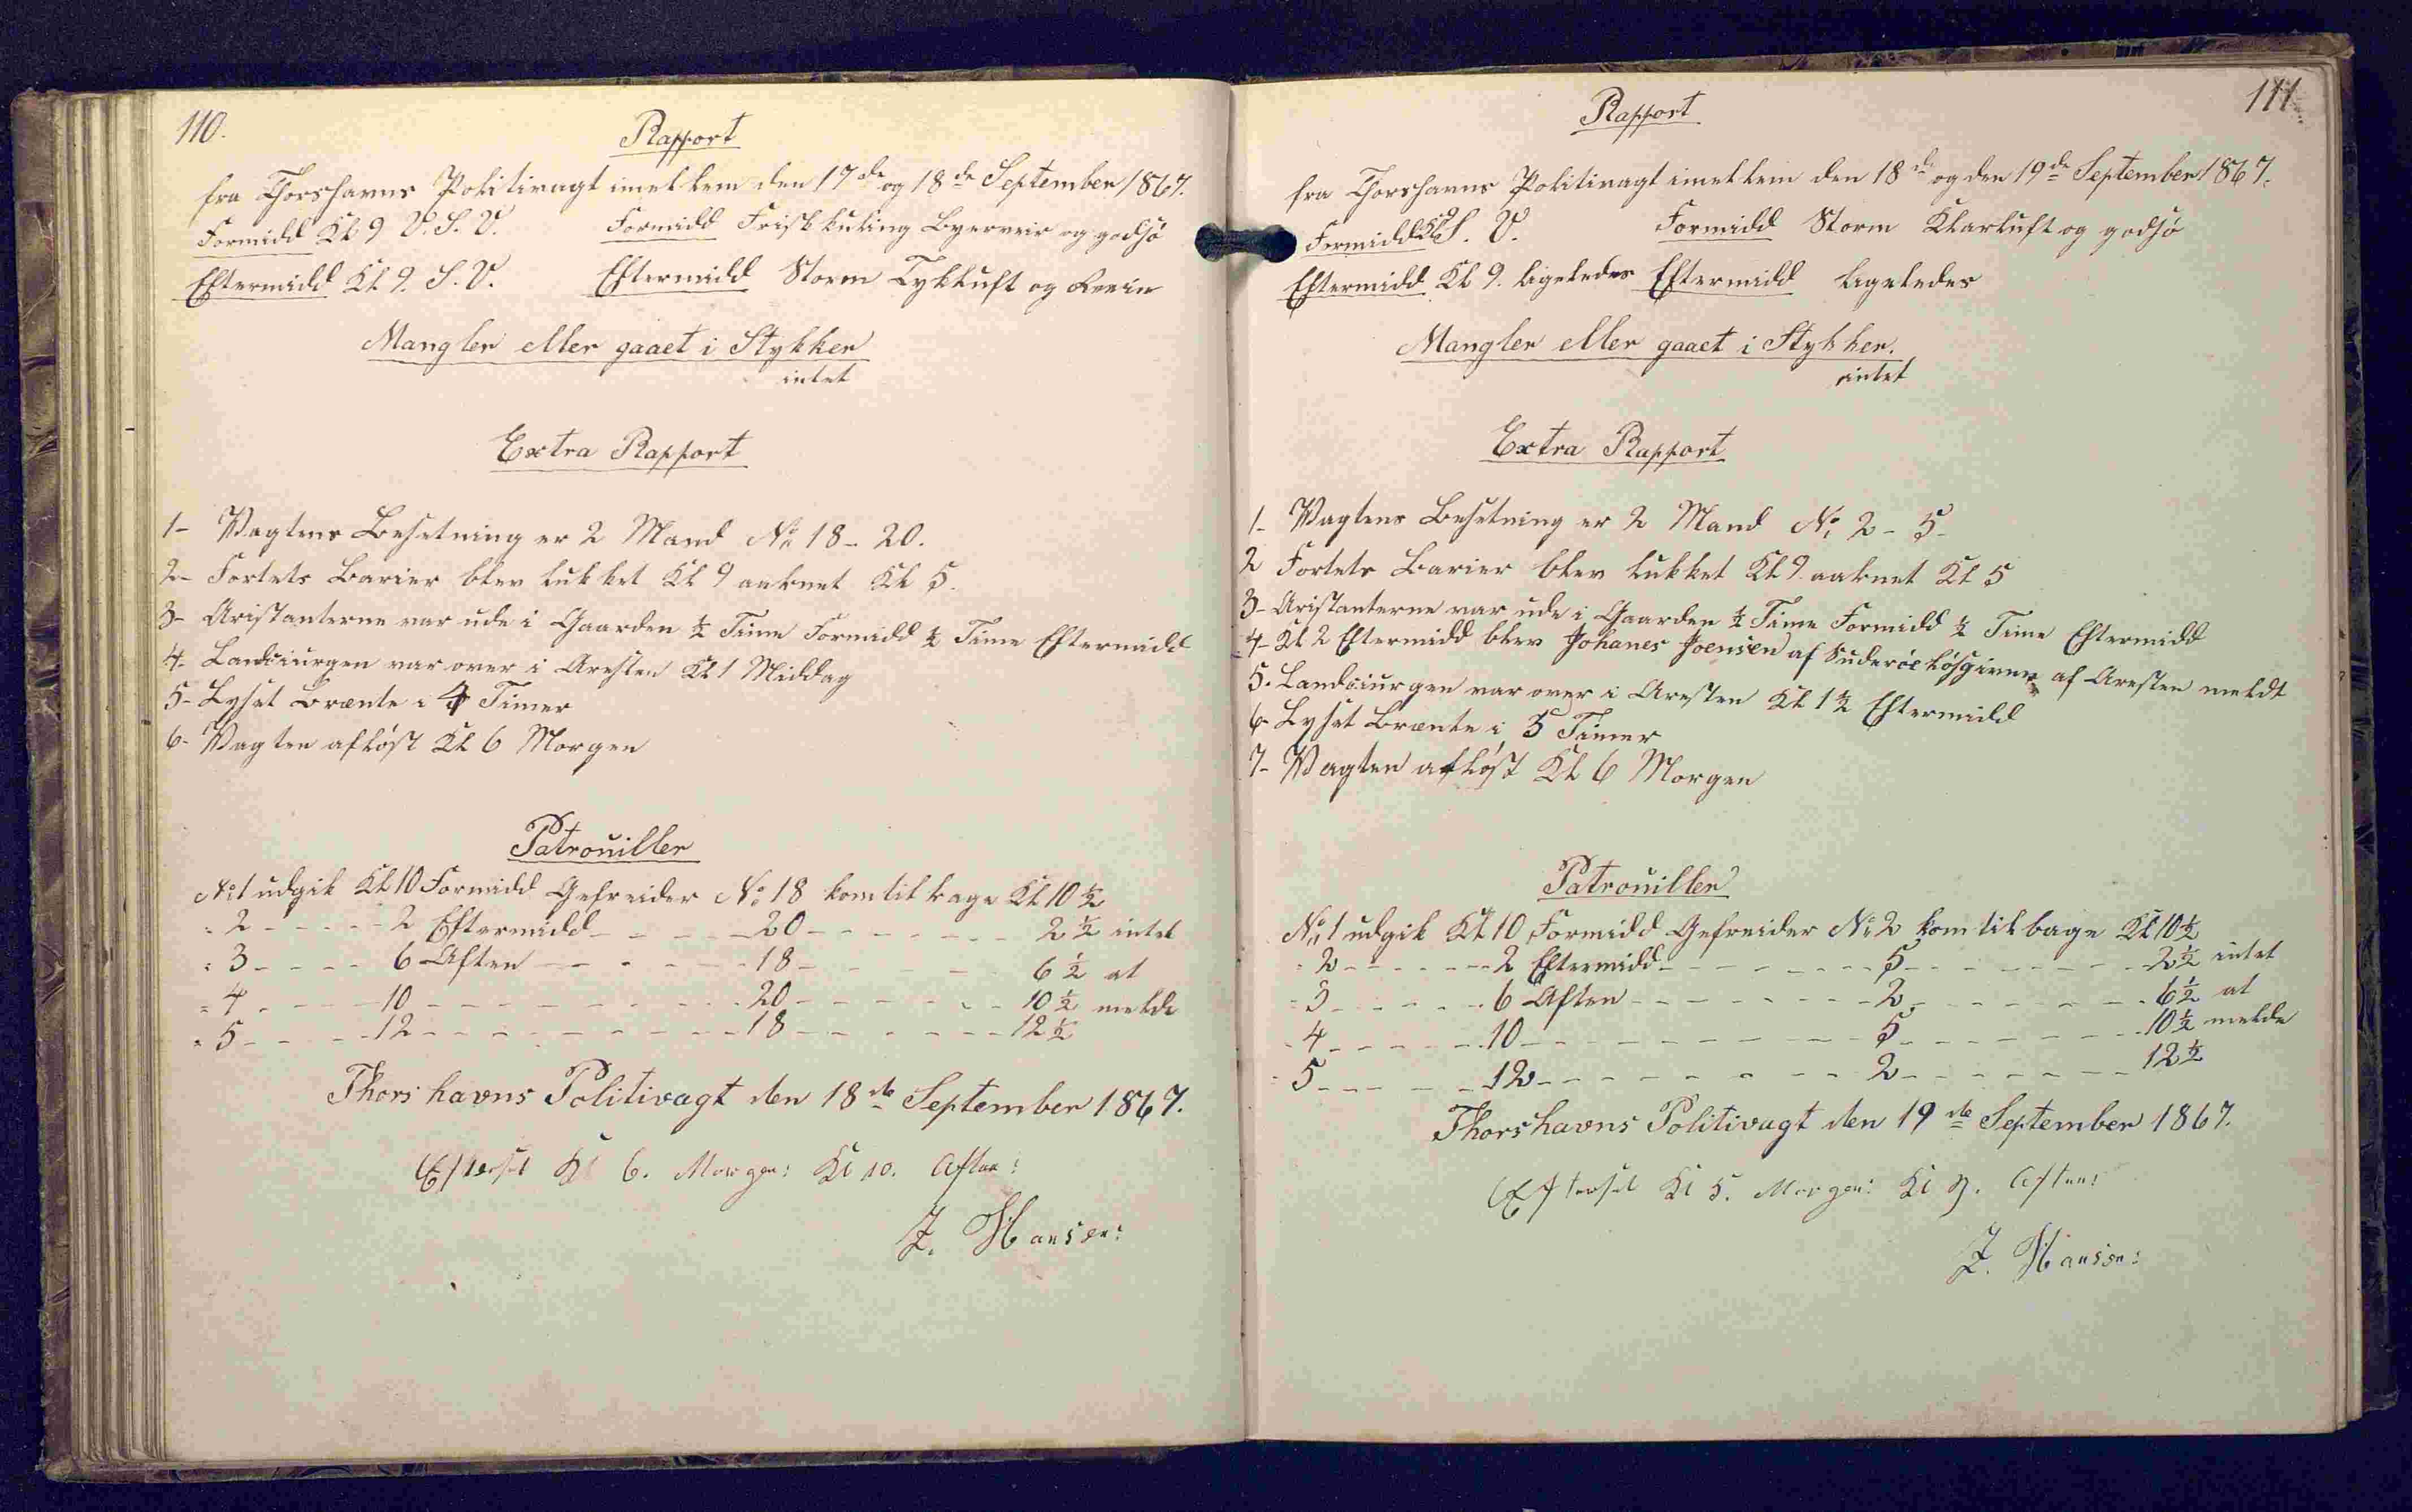 110.
Rapport
fra Thorshavns Politivagt imellem den 17de og 18de September 1867.
Formidd Kl 9 V. S. V. Formidd Frisk kuling Byerveir og godsø
Eftermidd Kl 9. S. V. Eftermidd Storm Tykluft og Reein
Mangler eller gaaet i Stykker
intet
Extra Rapport
1- Vagtens Besetning er 2 Mand No 18 - 20.
2- Fortets Barier blev lukket Kl 9 aabnet Kl 5.
3- Aristanterne var ude i Gaarden ½ Time Formidd ½ Time Eftermidd
4. Landciurgen var over i Aresten Kl 1 Middag
5- Lyset Brænte i 4 Timer
6- Vagten afløst Kl 6 Morgen
Patrouiller
No 1 udgik Kl 10 Formidd Gefreider No 18 kom tilbage Kl 10 ½
" 2 - - - - - 2 Eftermidd - - - - 20 - - - - - - - 2 ½ intet
" 3 - - - - 6 Aften - - - - - 18 - - - - - 6 ½ at
" 4 - - - - 10 - - - - - - - - 20 - - - - - - 10 ½ melde
" 5 - - - - 12 - - - - - - - - 18 - - - - - - 12 ½
Thorshavns Politivagt den 18de September 1867.
Efterset Kl 6. Morgen: Kl 10. Aften:
J. Hansen:
111
Rapport
fra Thorshavns Politivagt imellem den 18de og den 19de September 1867.
Formidd Kl 9 S. V. Formidd Storm Klarluft og godsø
Eftermidd Kl 9. ligeledes Eftermidd ligeledes
Mangler eller gaaet i Stykker.
intet
Extra Rapport
1- Vagtens Besetning er 2 Mand No, 2 - 5-
2 Fortets Barier blev lukket Kl 9. aabnet Kl 5
3- Aristanterne var ude i Gaarden ½ Time Formidd ½ Time Eftermidd
4- Kl 2 Eftermidd blev Johanes Joensen af Suderöe løsgiven af Aresten meldt
5. Landciurgen var over i Aresten Kl 1 ½ Eftermidd
6- Lyset Brænte i 5 Timer
7- Vagten afløst Kl 6 Morgen
Patrouiller
No, 1 udgik Kl 10 Formidd Gefreider No 2 kom tilbage Kl 10 ½
" 2 - - - - - - - 2 Eftermidd - - - - - - - - 5 - - - - - - - - 2 ½ intet
" 3 - - - - - - 6 Aften - - - - - - - - 2 - - - - - - - - 6 ½ at
- 4 - - - - - - 10 - - - - - - - - - - - 5 - - - - - - - - 10 ½ melde
" 5 - - - - - 12 - - - - - - - - - - 2 - - - - - - - 12 ½
Thorshavns Politivagt den 19de September 1867.
Efterset Kl 5. Morgen: Kl 9. Aften:
J. Hansen: